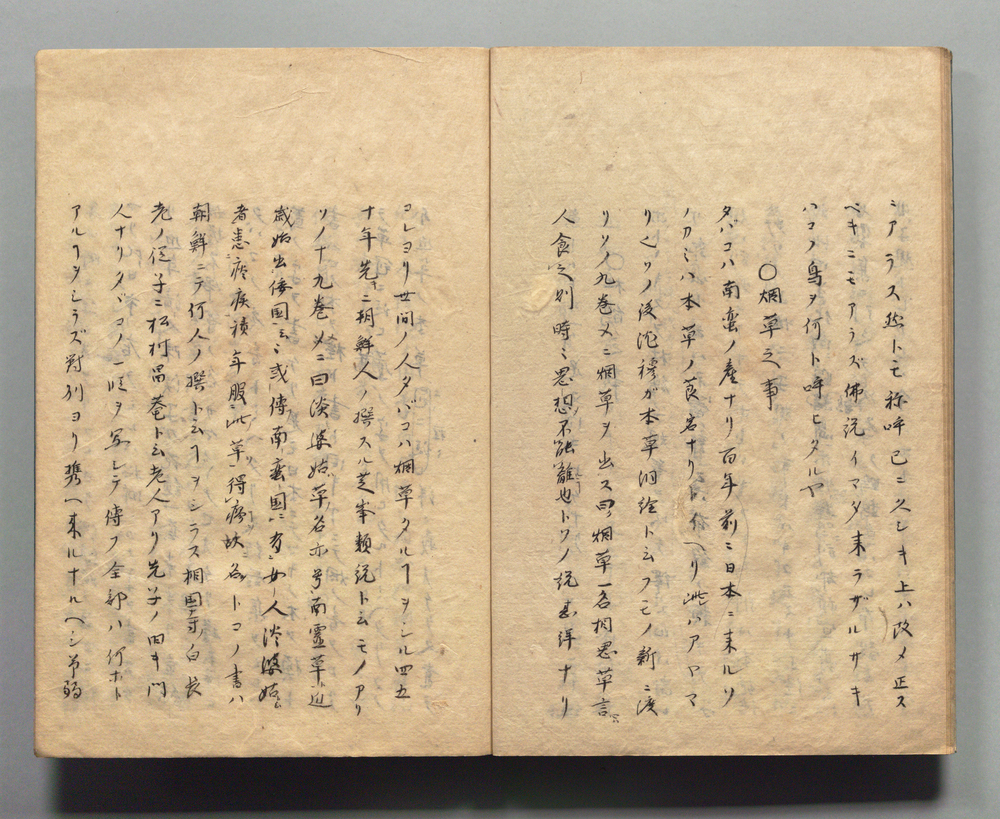 ニアラス然トモ称呼已ニ久シキ上ハ改メ正ス
ベキニモアラズ佛説イマダ来ラザルサキ
ハコノ鳥ヲ何ト呼ヒタルヤ
〇烟草之事
タバコハ南蛮ノ産ナリ百年前ニ日本ニ来ルソ
ノカミハ本草ノ莨菪ナリト云ヘリ此ハアヤマ
リ也ソノ後沈穆ガ本草洞詮ト云フモノ新ニ渡
リソノ九巻メニ烟草ヲ出ス曰烟草一名相思草言
人食之則時ミ思想不能離也トソノ説甚詳ナリ
コレヨリ世間ノ人タバコハ烟草タルヿヲシル四五
十年先キニ朝鮮人ノ撰スル芝峯類説ト云モノアリ
ソノ十九巻メニ曰淡婆姑草名亦号南靈草近
歳始出倭国云ミ或傳南蛮国ニ有女人淡婆姑
者患痰疾積年服此草得瘳故名トコノ書ハ
朝鮮ニテ何人ノ撰ト云ヿヲシラス相国寺白長
老ノ侄子ニ松村昌菴ト云老人アリ先子ノ旧キ門
人ナリタバコノ一條ヲ写シテ傳フ全部ハ何ホト
アルヿヲシラズ對州ヨリ携ヘ来ルナルヘシ弟弼